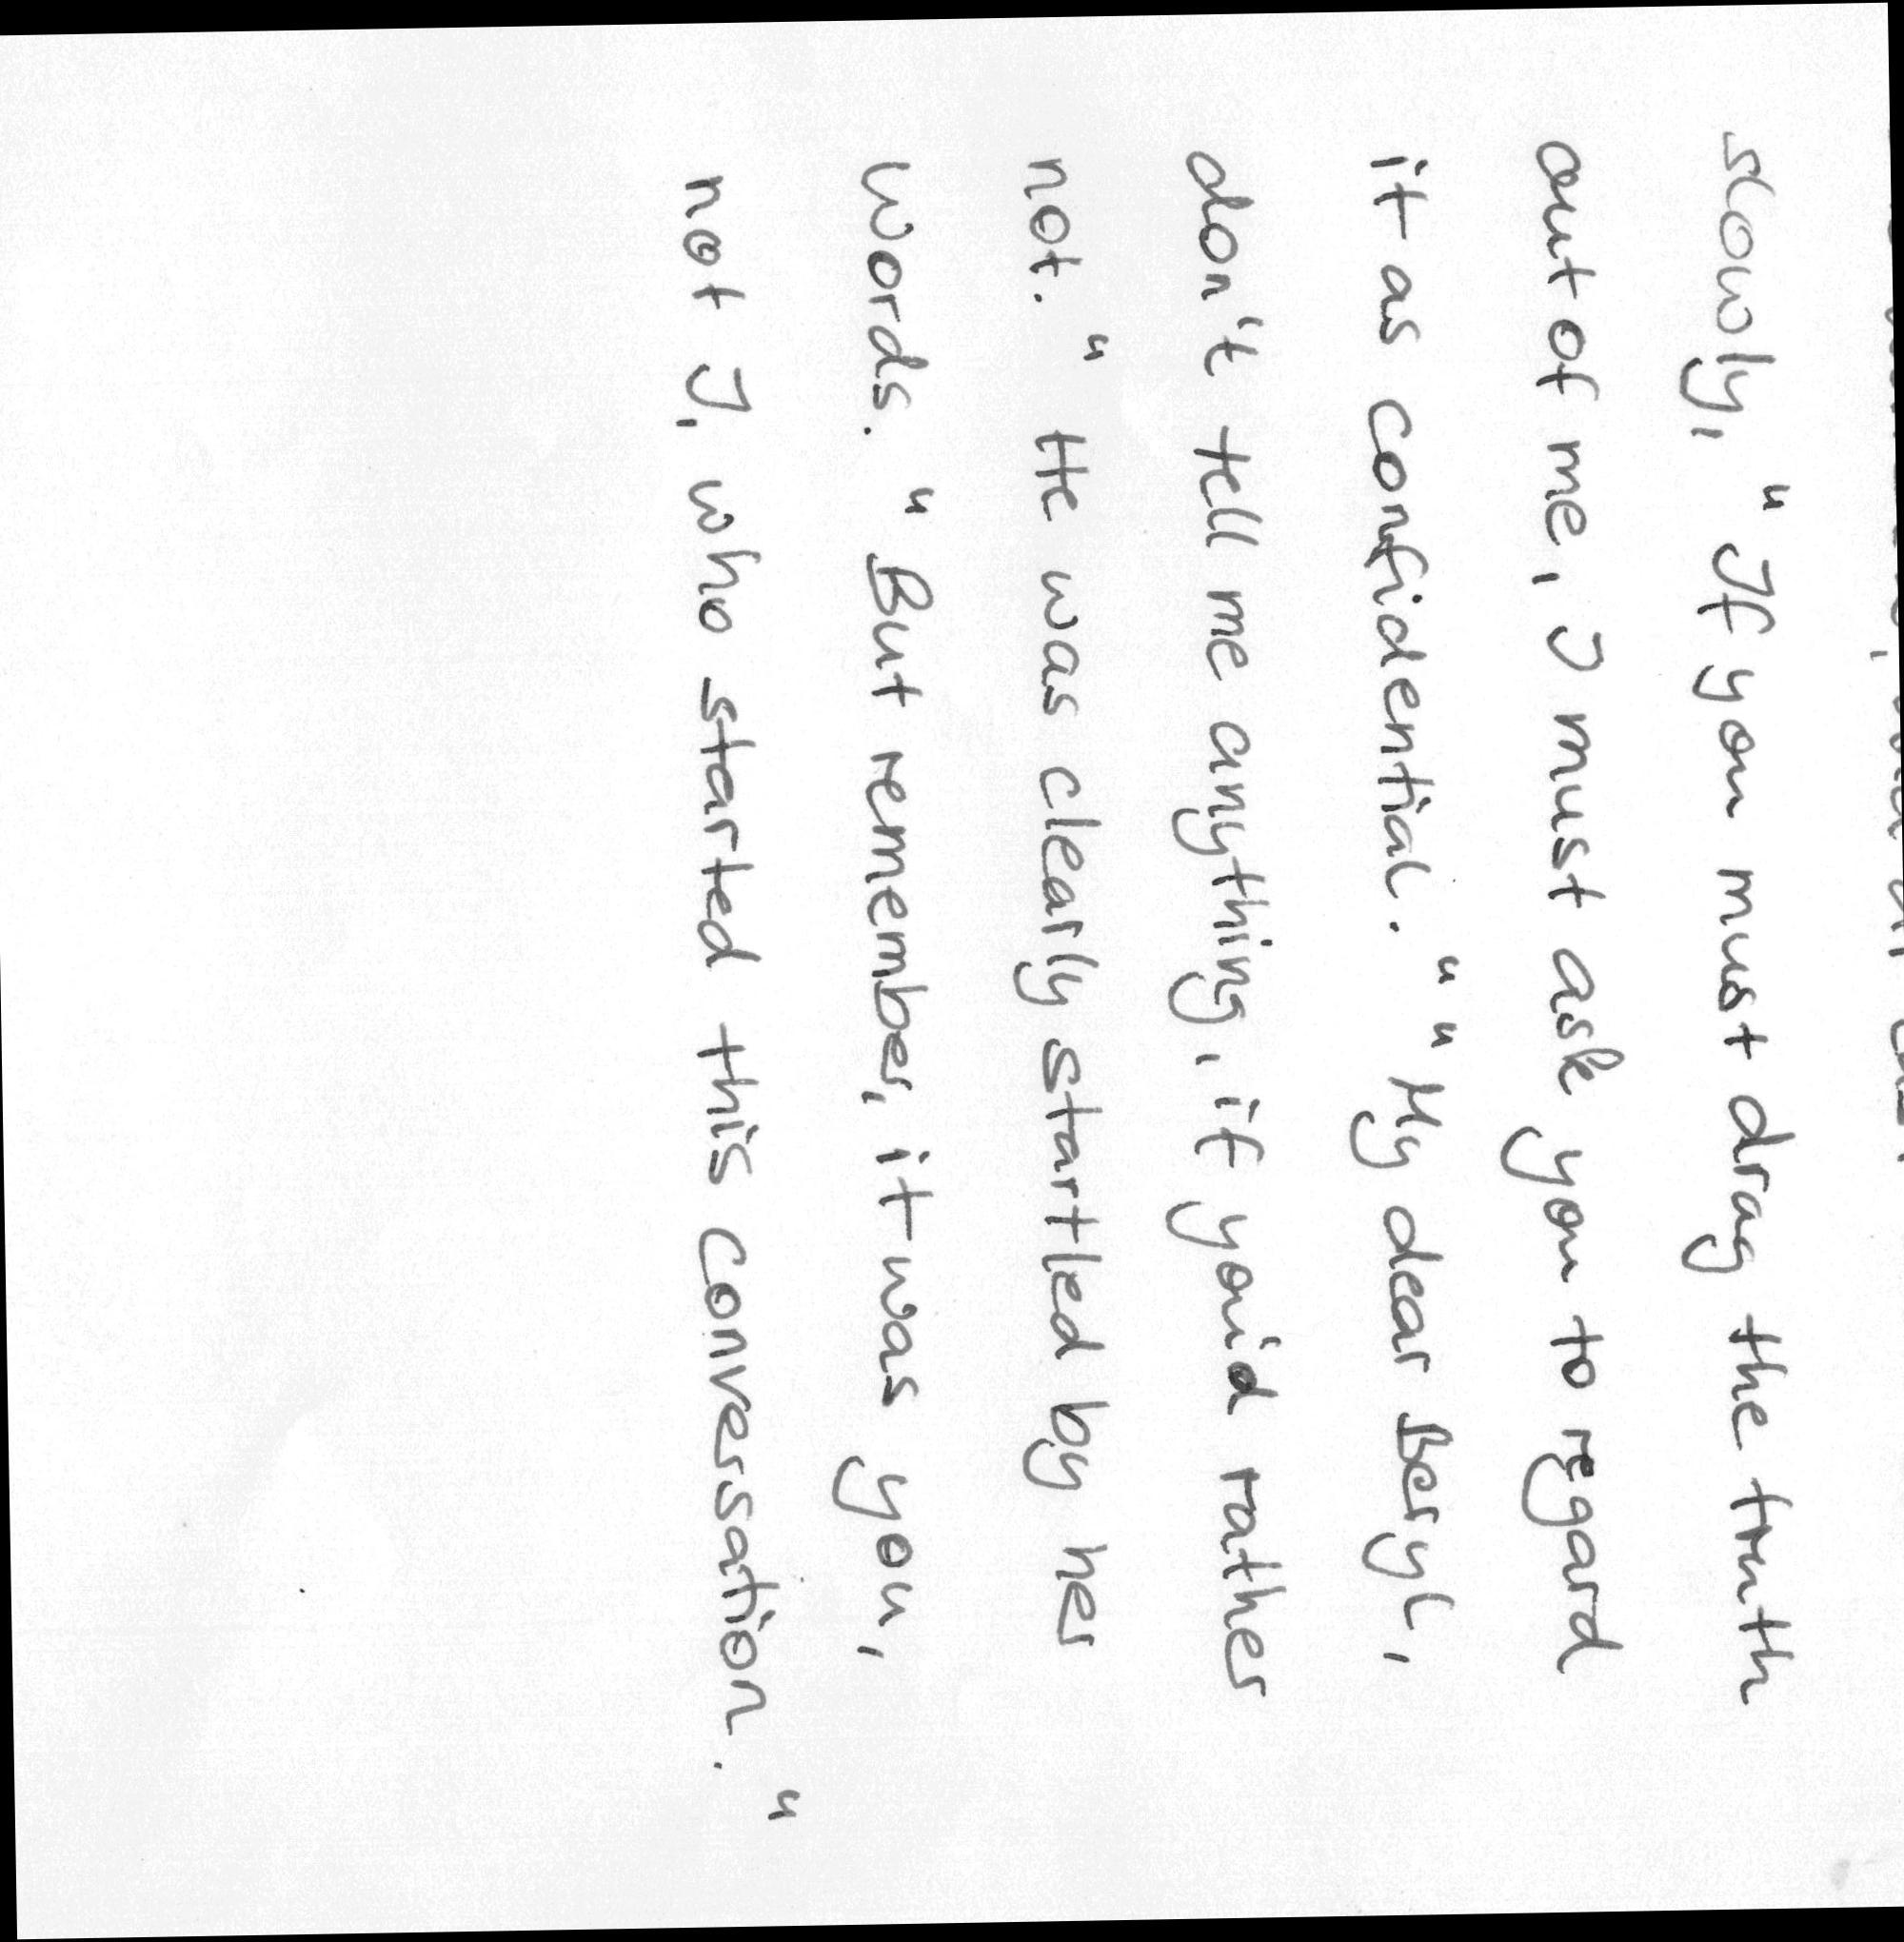 slowly, "If you must drag the truth
out of me, I must ask you to regard
it as confidential." "My dear Beryl,
don't tell me anything, if you'd rather
not." He was clearly startled by her
words. "But remember, it was you,
not I, who started this conversation."